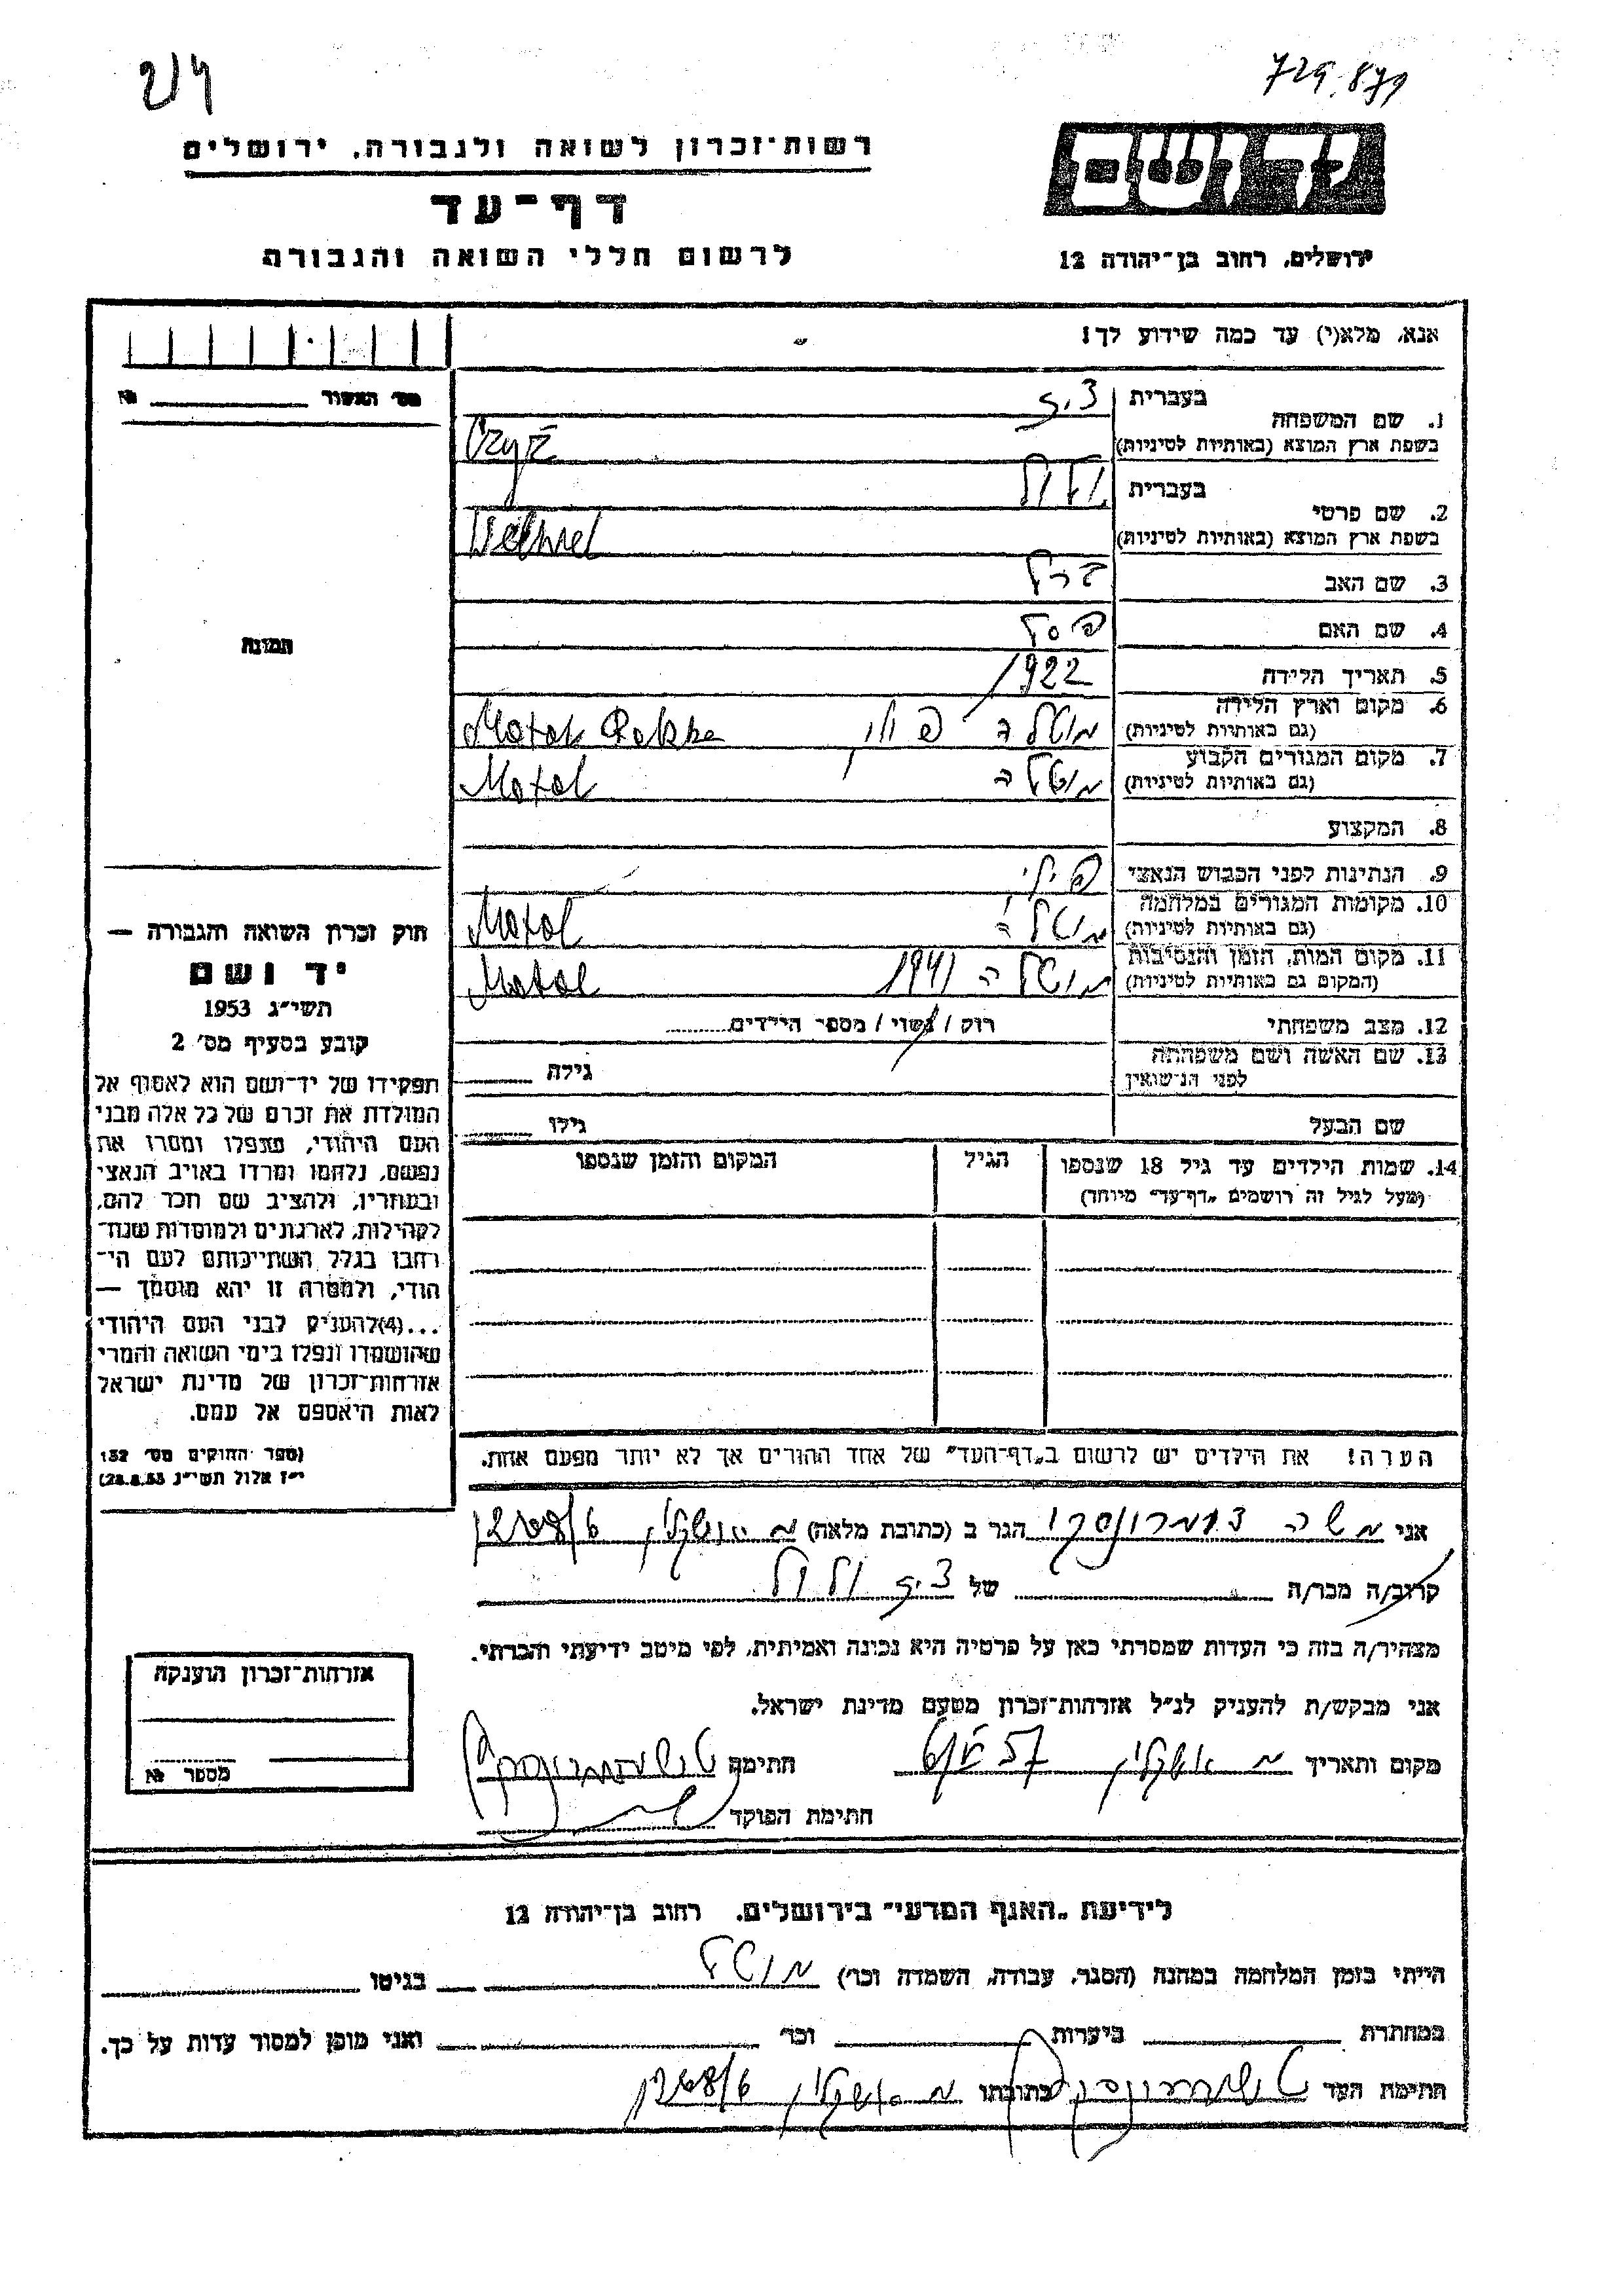 729.879
רשות־זכרון לשואה ולגבורה, ירושלים
דף־עד
לרשום חללי השואה והגבורה
יד ושם
ירושלים, רחוב בן־יהודה 12
אנא, מלא(י) עד כמה שידוע לך!
מס׳ האשור № ____
1. שם המשפחה בעברית
בשפת ארץ המוצא (באותיות לטיניות) Czyż
2. שם פרטי בעברית
בשפת ארץ המוצא (באותיות לטיניות)
3. שם האב
4. שם האם
5. תאריך הלידה 1922
6. מקום וארץ הלידה
(גם באותיות לטיניות) מוטלה פולין Motol Polska
7. מקום המגורים הקבוע
(גם באותיות לטיניות) מוטלה Motol
8. המקצוע
9. הנתינות לפני הכבוש הנאצי פולין
10. מקומות המגורים במלחמה
(גם באותיות לטיניות) מוטלה Motol
11. מקום המות, הזמן והנסיבות
(המקום גם באותיות לטיניות) מוטלה 1941 Motol
12. מצב משפחתי רוק / נשוי / מספר הילדים
13. שם האשה ושם משפחתה
לפני הנישואין גילה
שם הבעל גילו
14. שמות הילדים עד גיל 18 שנספו הגיל המקום והזמן שנספו
(מעל לגיל זה רושמים „דף־עד״ מיוחד)
הערה! את הילדים יש לרשום ב„דף־העד״ של אחד ההורים אך לא יותר מפעם אחת.
תמונה
חוק זכרון השואה והגבורה —
יד ושם
תשי״ג 1953
קובע בסעיף מס׳ 2
תפקידו של יד־ושם הוא לאסוף אל
המולדת את זכרם של כל אלה מבני
העם היהודי, שנפלו ומסרו את
נפשם, נלחמו ומרדו באויב הנאצי
ובעוזריו, ולהציב שם וזכר להם,
לקהילות, לארגונים ולמוסדות שנח־
רבו בגלל השתייכותם לעם הי־
הודי, ולמטרה זו יהא מוסמך —
...(4) להעניק לבני העם היהודי
שהושמדו ונפלו בימי השואה והמרי
אזרחות־זכרון של מדינת ישראל
לאות היאספם אל עמם.
(ספר החוקים מס׳ 132
י״ז אלול תשי״ג 28.8.53)
אני משה הגר ב (כתובת מלאה)
קרוב/ה מכר/ה של
מצהיר/ה בזה כי העדות שמסרתי כאן על פרטיה היא נכונה ואמיתית, לפי מיטב ידיעתי והכרתי.
אני מבקש/ת להעניק לנ״ל אזרחות־זכרון מטעם מדינת ישראל.
מקום ותאריך אשקלון חתימה
חתימת הפוקד
אזרחות־זכרון הוענקה
מספר №
לידיעת „האגף המדעי״ בירושלים, רחוב בן־יהודה 12
הייתי בזמן המלחמה במחנה (הסגר, עבודה, השמדה וכו׳) מוטל בגיטו
במחתרת ביערות וכו׳ ואני מוכן למסור עדות על כך.
חתימת העד כתובתו אשקלון